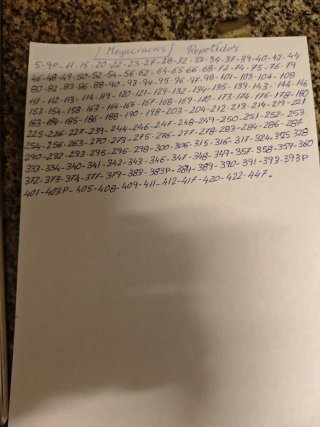 / Megacracks / Repetidos
5-9P-11-15-20-22-23-27-28-32-33-34-37-39-40-42-44
46-48-49-50-52-54-56-62-64-65-66-68-72-74-75-76-79
80-82-83-86-88-90-93-94-95-96-97-98-101-103-104-108
111-112-113-114-119-120-121-129-132-134-135-139-143-144-146
153-154-158-163-164-166-167-168-169-170-173-174-176-178-180
183-184-185-186-188-190-198-203-204-212-213-214-219-221
225-226-227-239-244-246-247-248-249-250-251-252-253
254-256-263-270-273-275-276-277-278-283-284-286-287
290-292-293-295-296-298-300-306-315-316-317-324-325-328
333-334-340-341-342-343-346-347-348-349-357-358-359-360
372-373-374-377-379-383-383P-384-389-390-391-393-393P
401-403P-405-408-409-411-412-417-420-422-447-